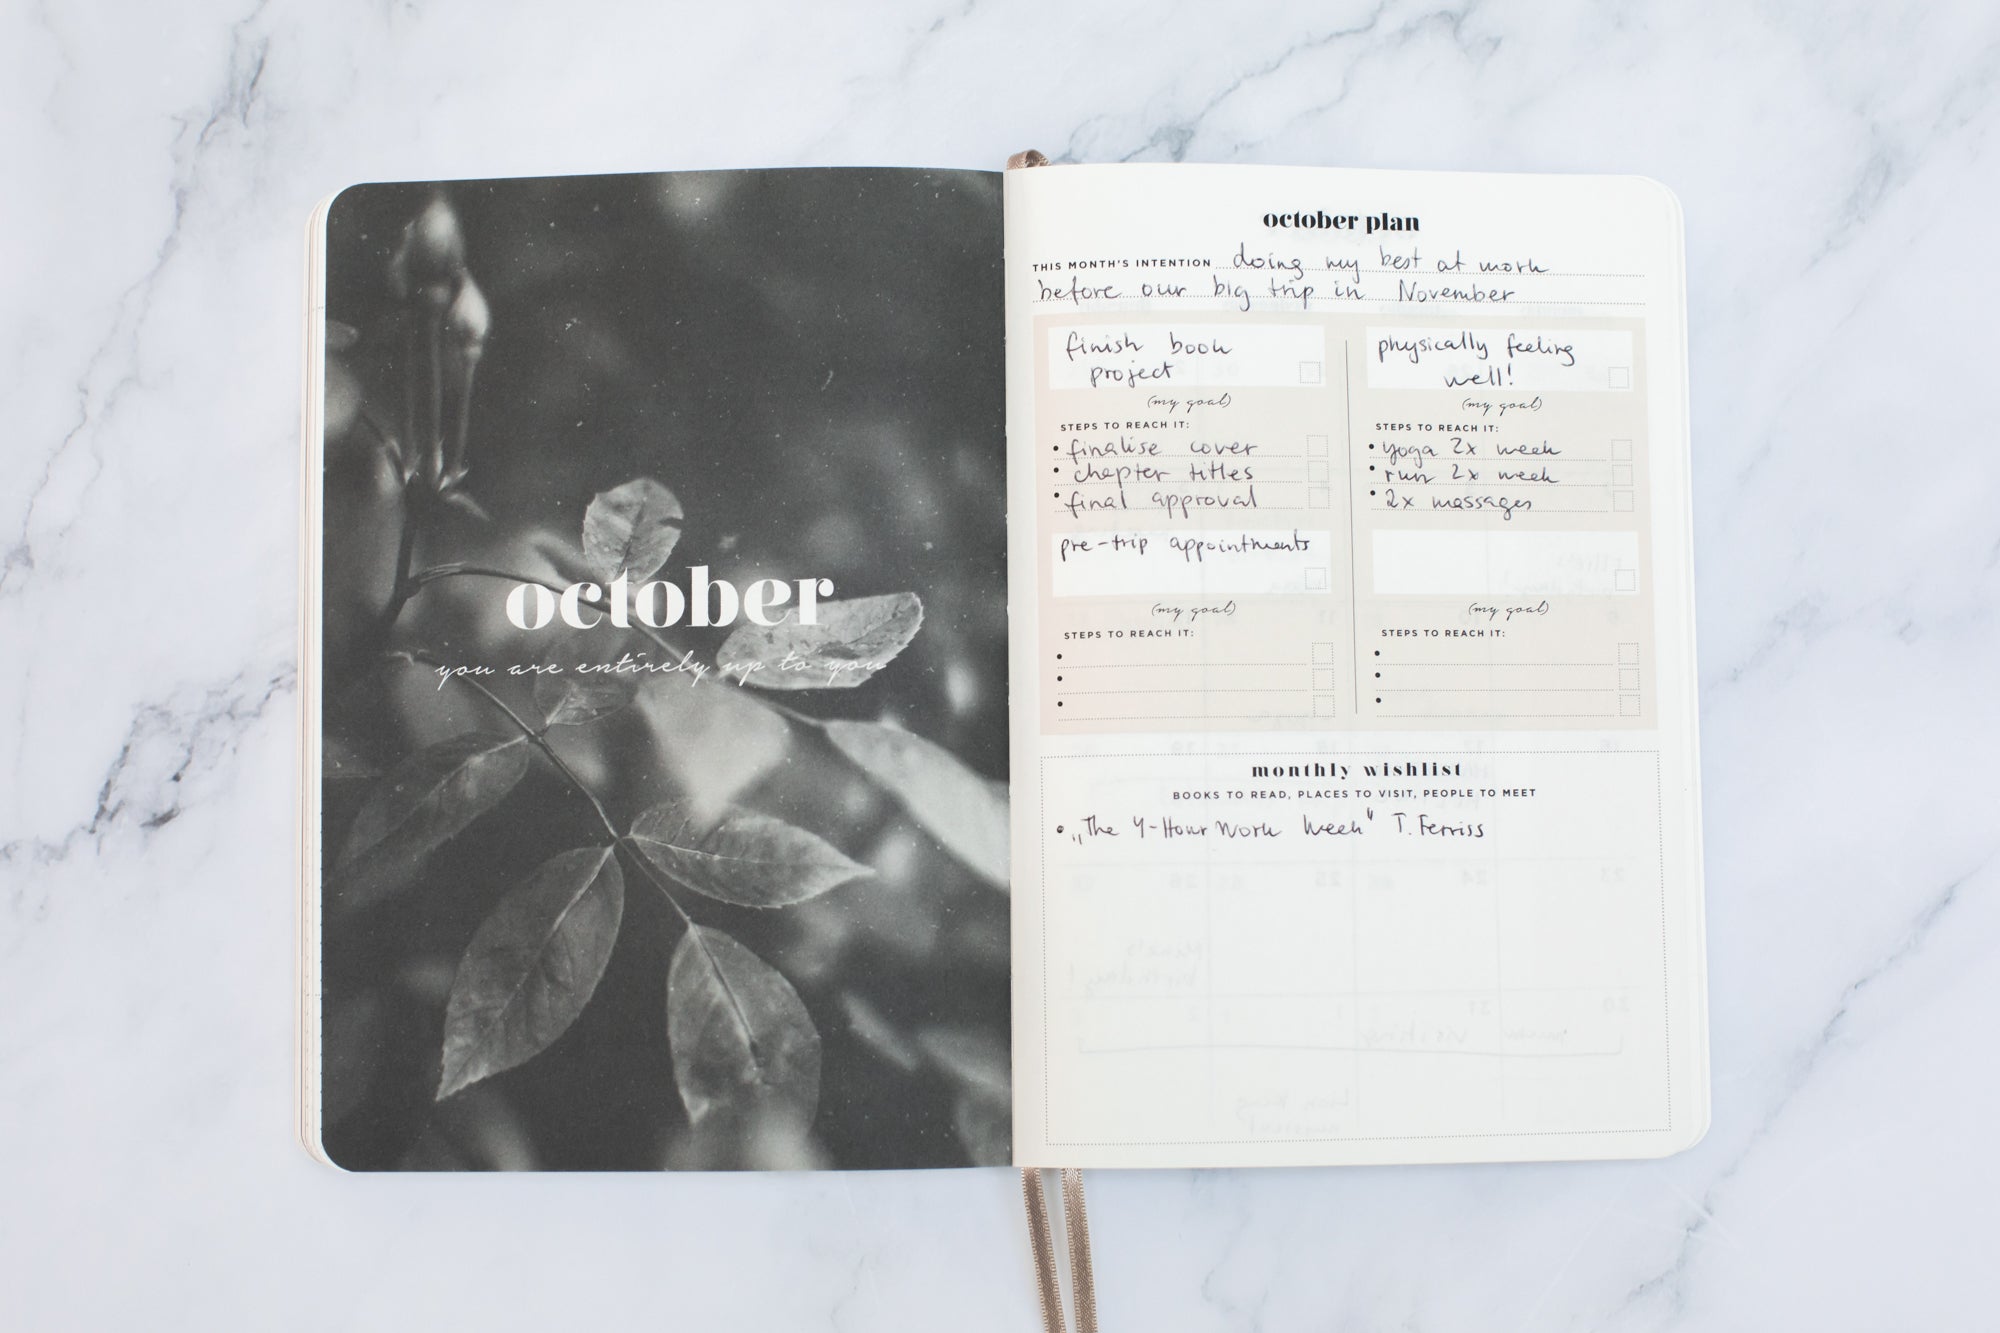 october
you are entirely up to you
october plan
THIS MONTH'S INTENTION doing my best at work
before our big trip in November
finish book
project
(my goal)
STEPS TO REACH IT:
• finalise cover
• chapter titles
• final approval
physically feeling
well!
(my goal)
STEPS TO REACH IT:
• yoga 2x week
• run 2x week
• 2x massages
pre-trip appointments
(my goal)
STEPS TO REACH IT:
•
•
•
(my goal)
STEPS TO REACH IT:
•
•
•
monthly wishlist
BOOKS TO READ, PLACES TO VISIT, PEOPLE TO MEET
• „The 4-Hour Work Week" T. Ferriss